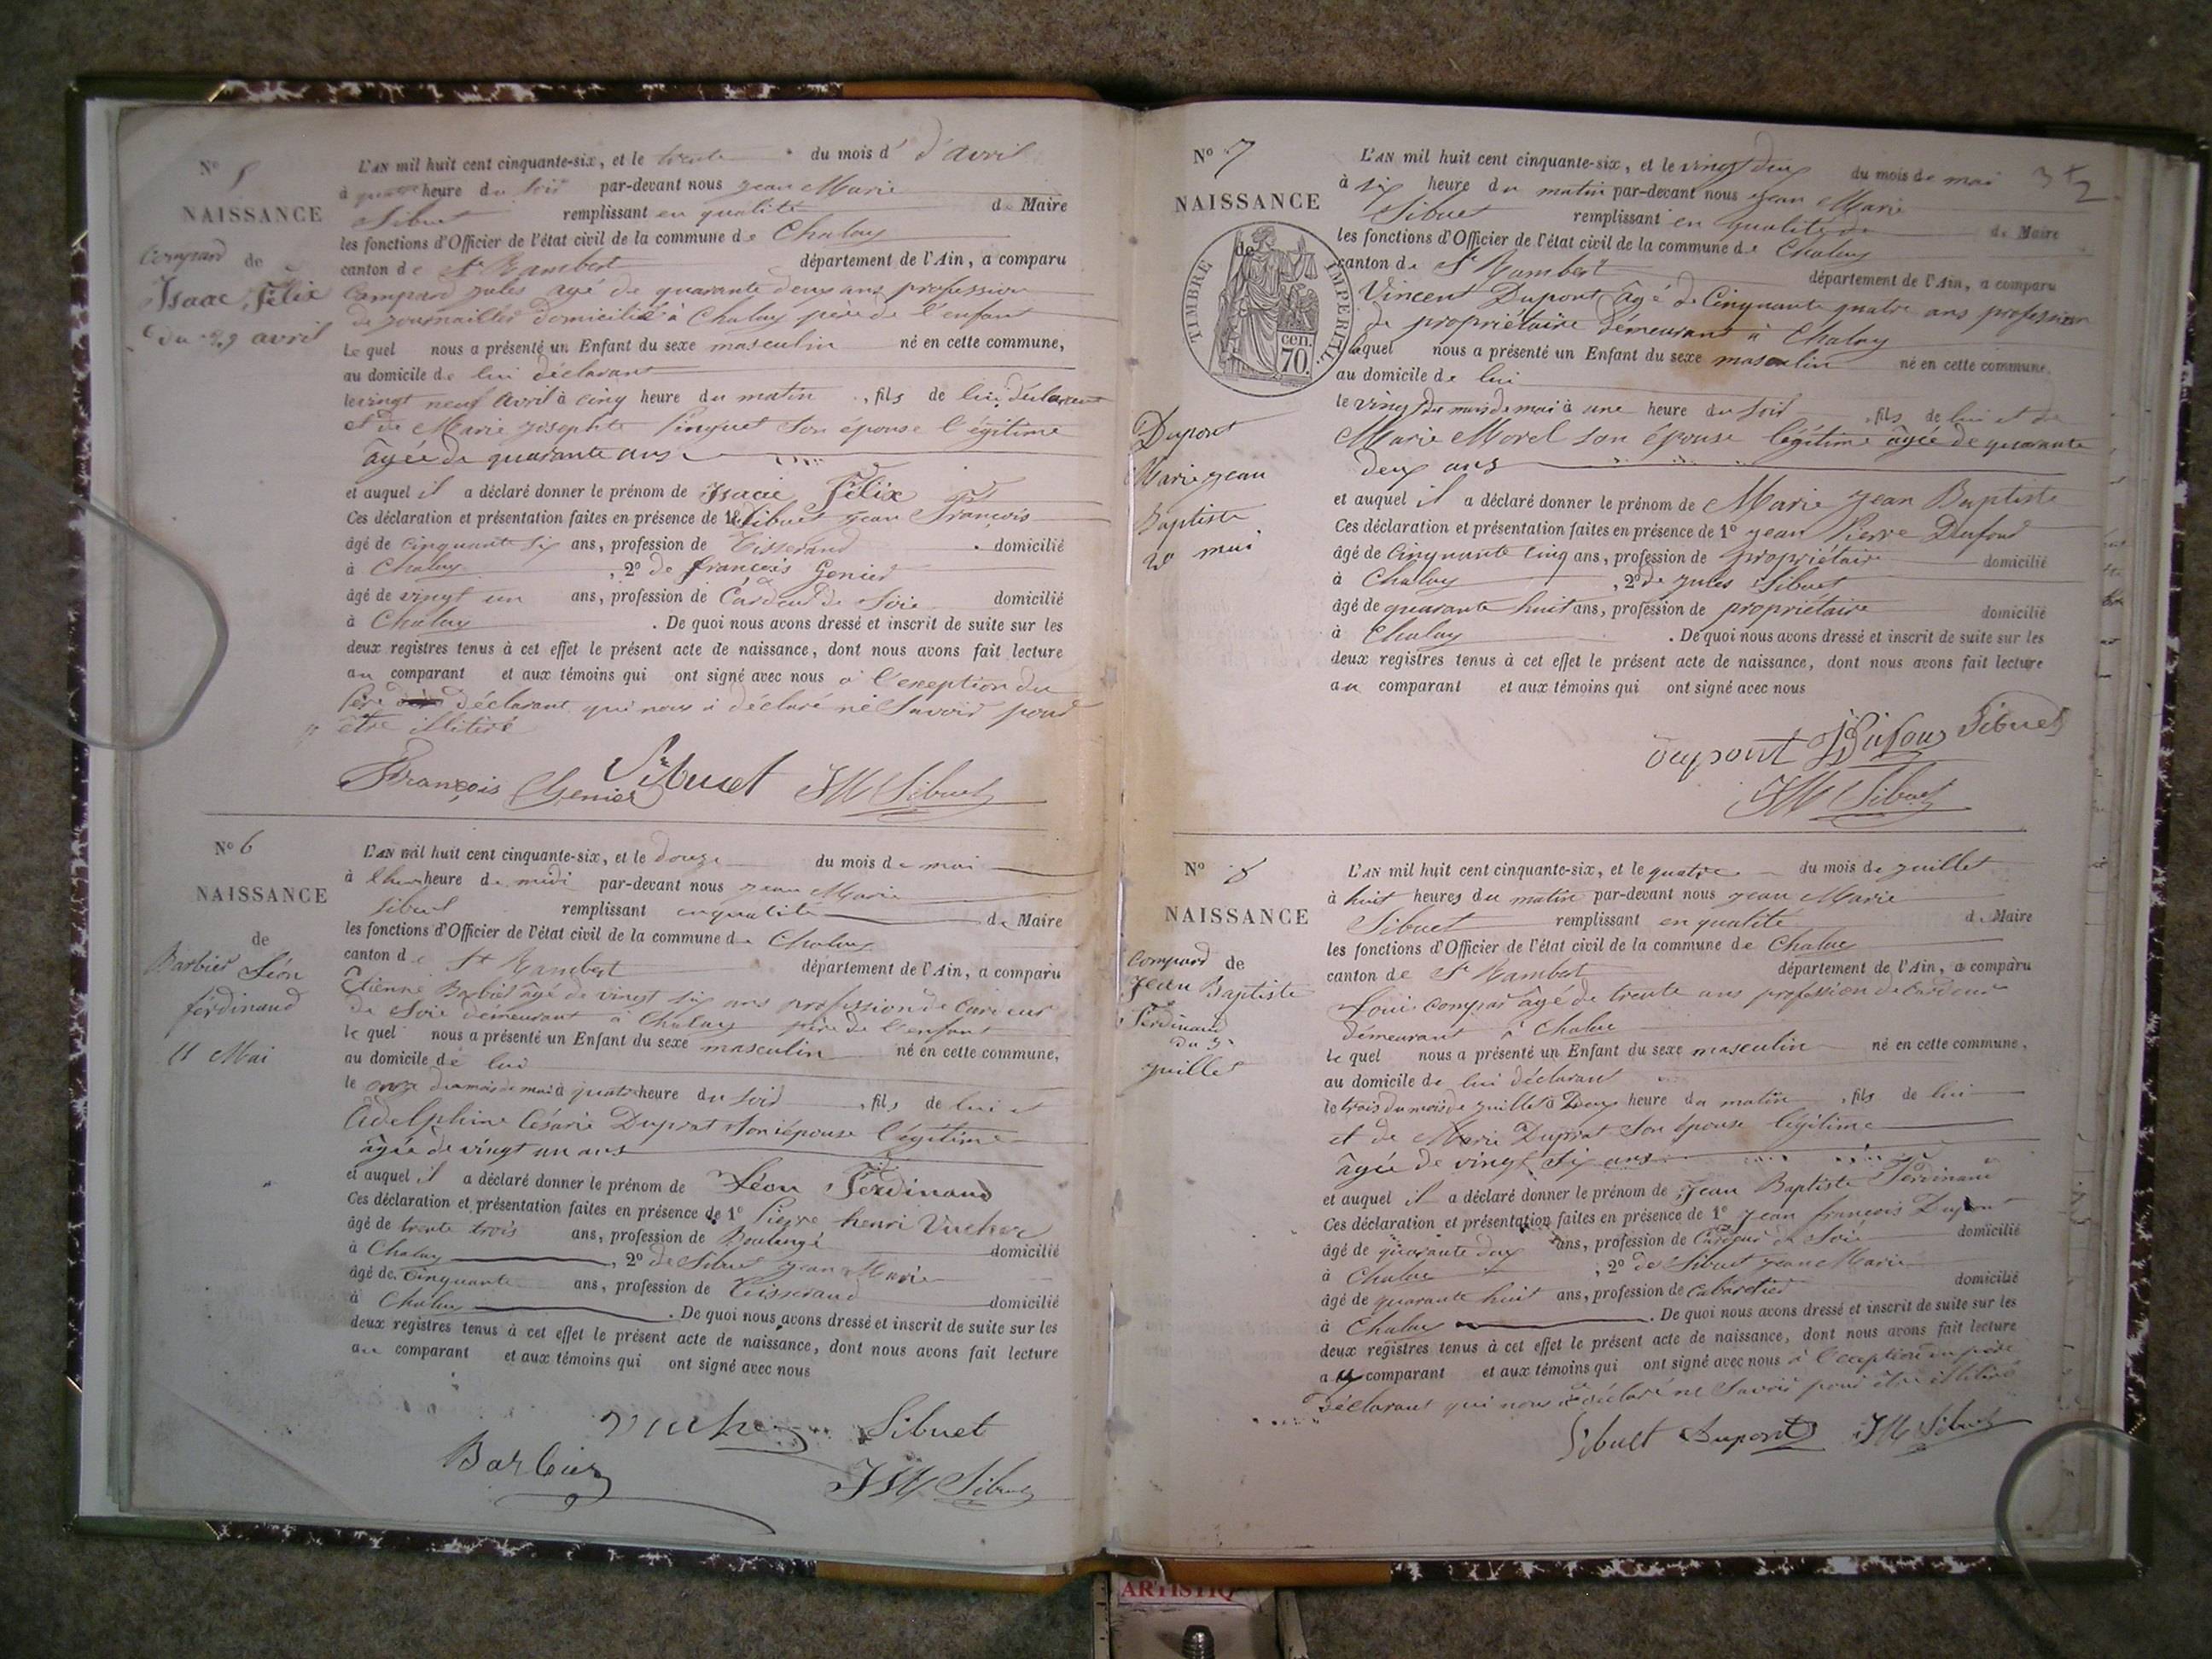 N° 5
NAISSANCE
Compard de
Isaac Félix
du 29 avril
L'AN mil huit cent cinquante-six, et le trente du mois d' d'avril
à quatre heure du soir par-devant nous jean Marie
Sibuet remplissant en qualité de Maire
les fonctions d'Officier de l'état civil de la commune de Chaley
canton de St Rambert département de l'Ain, a comparu
Compard jules agé de quarante deux ans profession
de journaillier domicilié à Chaley père de l'enfant
Le quel nous a présenté un Enfant du sexe masculin né en cette commune,
au domicile de lui déclarant
le vingt neuf avril à cinq heure du matin, fils de lui déclarant
et de Marie josephte Pinguet son épouse légitime
âgée de quarante ans
et auquel il a déclaré donner le prénom de Isaac Félix
Ces déclaration et présentation faites en présence de 1° Sibuet jean François
âgé de cinquante six ans, profession de Tisserand domicilié
à Chaley, 2° de françois Genier
âgé de vingt un ans, profession de Cardeur de Soie domicilié
à Chaley. De quoi nous avons dressé et inscrit de suite sur les
deux registres tenus à cet effet le présent acte de naissance, dont nous avons fait lecture
au comparant et aux témoins qui ont signé avec nous à l'exception du
Père déclarant qui nous a déclaré ne savoir pour
être illitéré
François Genier Sibuet JM Sibuet
N° 6
NAISSANCE
de
Barbier Léon
ferdinand
11 Mai
L'AN mil huit cent cinquante-six, et le douze du mois de mai
à heure de midi par-devant nous jean Marie
Sibuet remplissant en qualité de Maire
les fonctions d'Officier de l'état civil de la commune de Chaley
canton de St Rambert département de l'Ain, a comparu
Etienne Barbier âgé de vingt six ans profession de Cardeur
de Soie demeurant à Chaley père de l'enfant
le quel nous a présenté un Enfant du sexe masculin né en cette commune,
au domicile de lui
le onze du mois de mai à quatre heure du soir, fils de lui et
Adelphine Césarie Duprat son épouse légitime
âgée de vingt un ans
et auquel il a déclaré donner le prénom de Léon Ferdinand
Ces déclaration et présentation faites en présence de 1° Pierre henri Vucher
âgé de trente trois ans, profession de Boulangé domicilié
à Chaley, 2° de Sibuet jean Marie
âgé de cinquante ans, profession de Tisserand domicilié
à Chaley. De quoi nous avons dressé et inscrit de suite sur les
deux registres tenus à cet effet le présent acte de naissance, dont nous avons fait lecture
au comparant et aux témoins qui ont signé avec nous
Vucher Sibuet
Barbier JM Sibuet
N° 7
NAISSANCE
de
TIMBRE IMPERIAL
70 cen.
Dupont
Marie jean
Baptiste
20 mai
L'AN mil huit cent cinquante-six, et le vingt deux du mois de mai
à six heure du matin par-devant nous jean Marie
Sibuet remplissant en qualité de de Maire
les fonctions d'Officier de l'état civil de la commune de Chaley
canton de St Rambert département de l'Ain, a comparu
Vincent Dupont âgé de Cinquante quatre ans profession
de propriétaire demeurant à Chaley
Lequel nous a présenté un Enfant du sexe masculin né en cette commune
au domicile de lui
le vingt du mois de mai à une heure du soir, fils de lui et de
Marie Morel son épouse légitime âgée de quarante
deux ans
et auquel il a déclaré donner le prénom de Marie jean Baptiste
Ces déclaration et présentation faites en présence de 1° jean Pierre Dufour
âgé de Cinquante cinq ans, profession de propriétaire domicilié
à Chaley, 2° de jules Sibuet
âgé de quarante huit ans, profession de propriétaire domicilié
à Chaley. De quoi nous avons dressé et inscrit de suite sur les
deux registres tenus à cet effet le présent acte de naissance, dont nous avons fait lecture
au comparant et aux témoins qui ont signé avec nous
Dupont Dufour Sibuet
JM Sibuet
N° 8
NAISSANCE
Compard de
Jean Baptiste
Ferdinand
du 3
juillet
L'AN mil huit cent cinquante-six, et le quatre du mois de juillet
à huit heures du matin par-devant nous jean Marie
Sibuet remplissant en qualité de Maire
les fonctions d'Officier de l'état civil de la commune de Chaley
canton de St Rambert département de l'Ain, a comparu
Louis Compar âgé de trente ans profession de Cardeur
demeurant à Chaley
le quel nous a présenté un Enfant du sexe masculin né en cette commune,
au domicile de lui déclarant
le trois du mois de juillet à Deux heure du matin, fils de lui
et de Marie Duprat son épouse légitime
âgée de vingt six ans
et auquel il a déclaré donner le prénom de Jean Baptiste Ferdinand
Ces déclaration et présentation faites en présence de 1° jean francois Dupont
âgé de quarante deux ans, profession de Cardeur de Soie domicilié
à Chaley, 2° de Sibuet jean Marie
âgé de quarante huit ans, profession de Cabaretier domicilié
à Chaley. De quoi nous avons dressé et inscrit de suite sur les
deux registres tenus à cet effet le présent acte de naissance, dont nous avons fait lecture
au comparant et aux témoins qui ont signé avec nous à l'exception du père
déclarant qui nous a déclaré ne savoir pour être illitéré
Sibuet Dupont JM Sibuet
ARTISTIQ